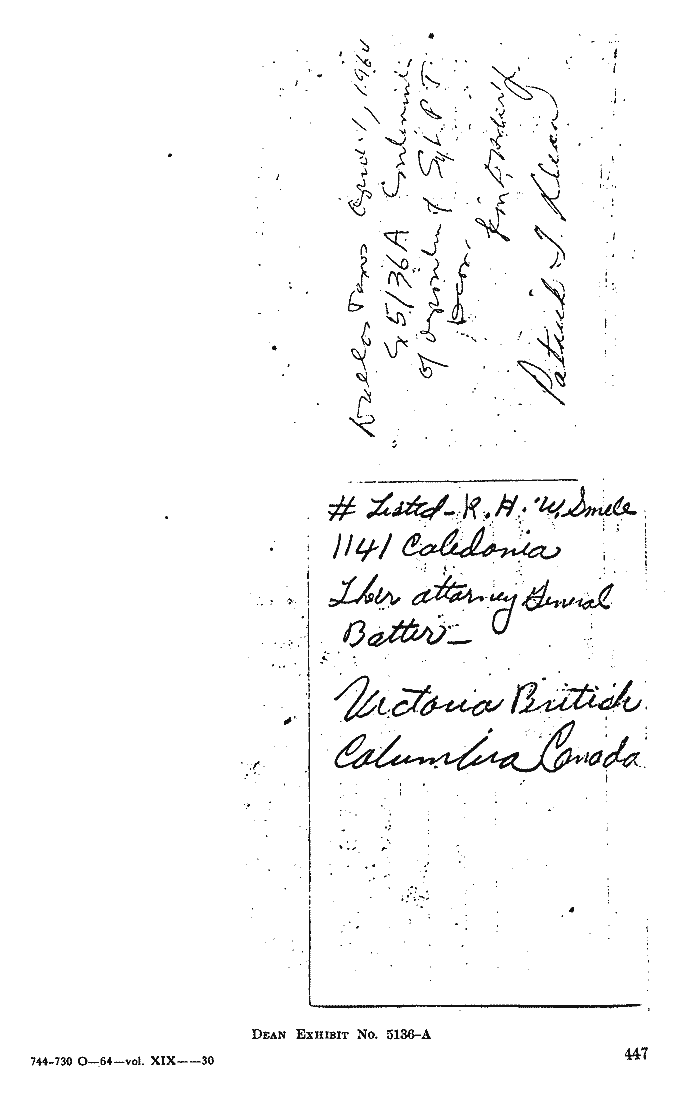 Dallas Texas April 1, 1964
5136A
of deposition of Sgt. P. T.
Dean.
Patrick T. Dean
# Listed - R. H. W. Smele
1141 Caledonia
Their attorney General
Batter -
Victoria British
Columbia Canada
DEAN EXHIBIT NO. 5136-A
744-730 O—64—vol. XIX——30
447